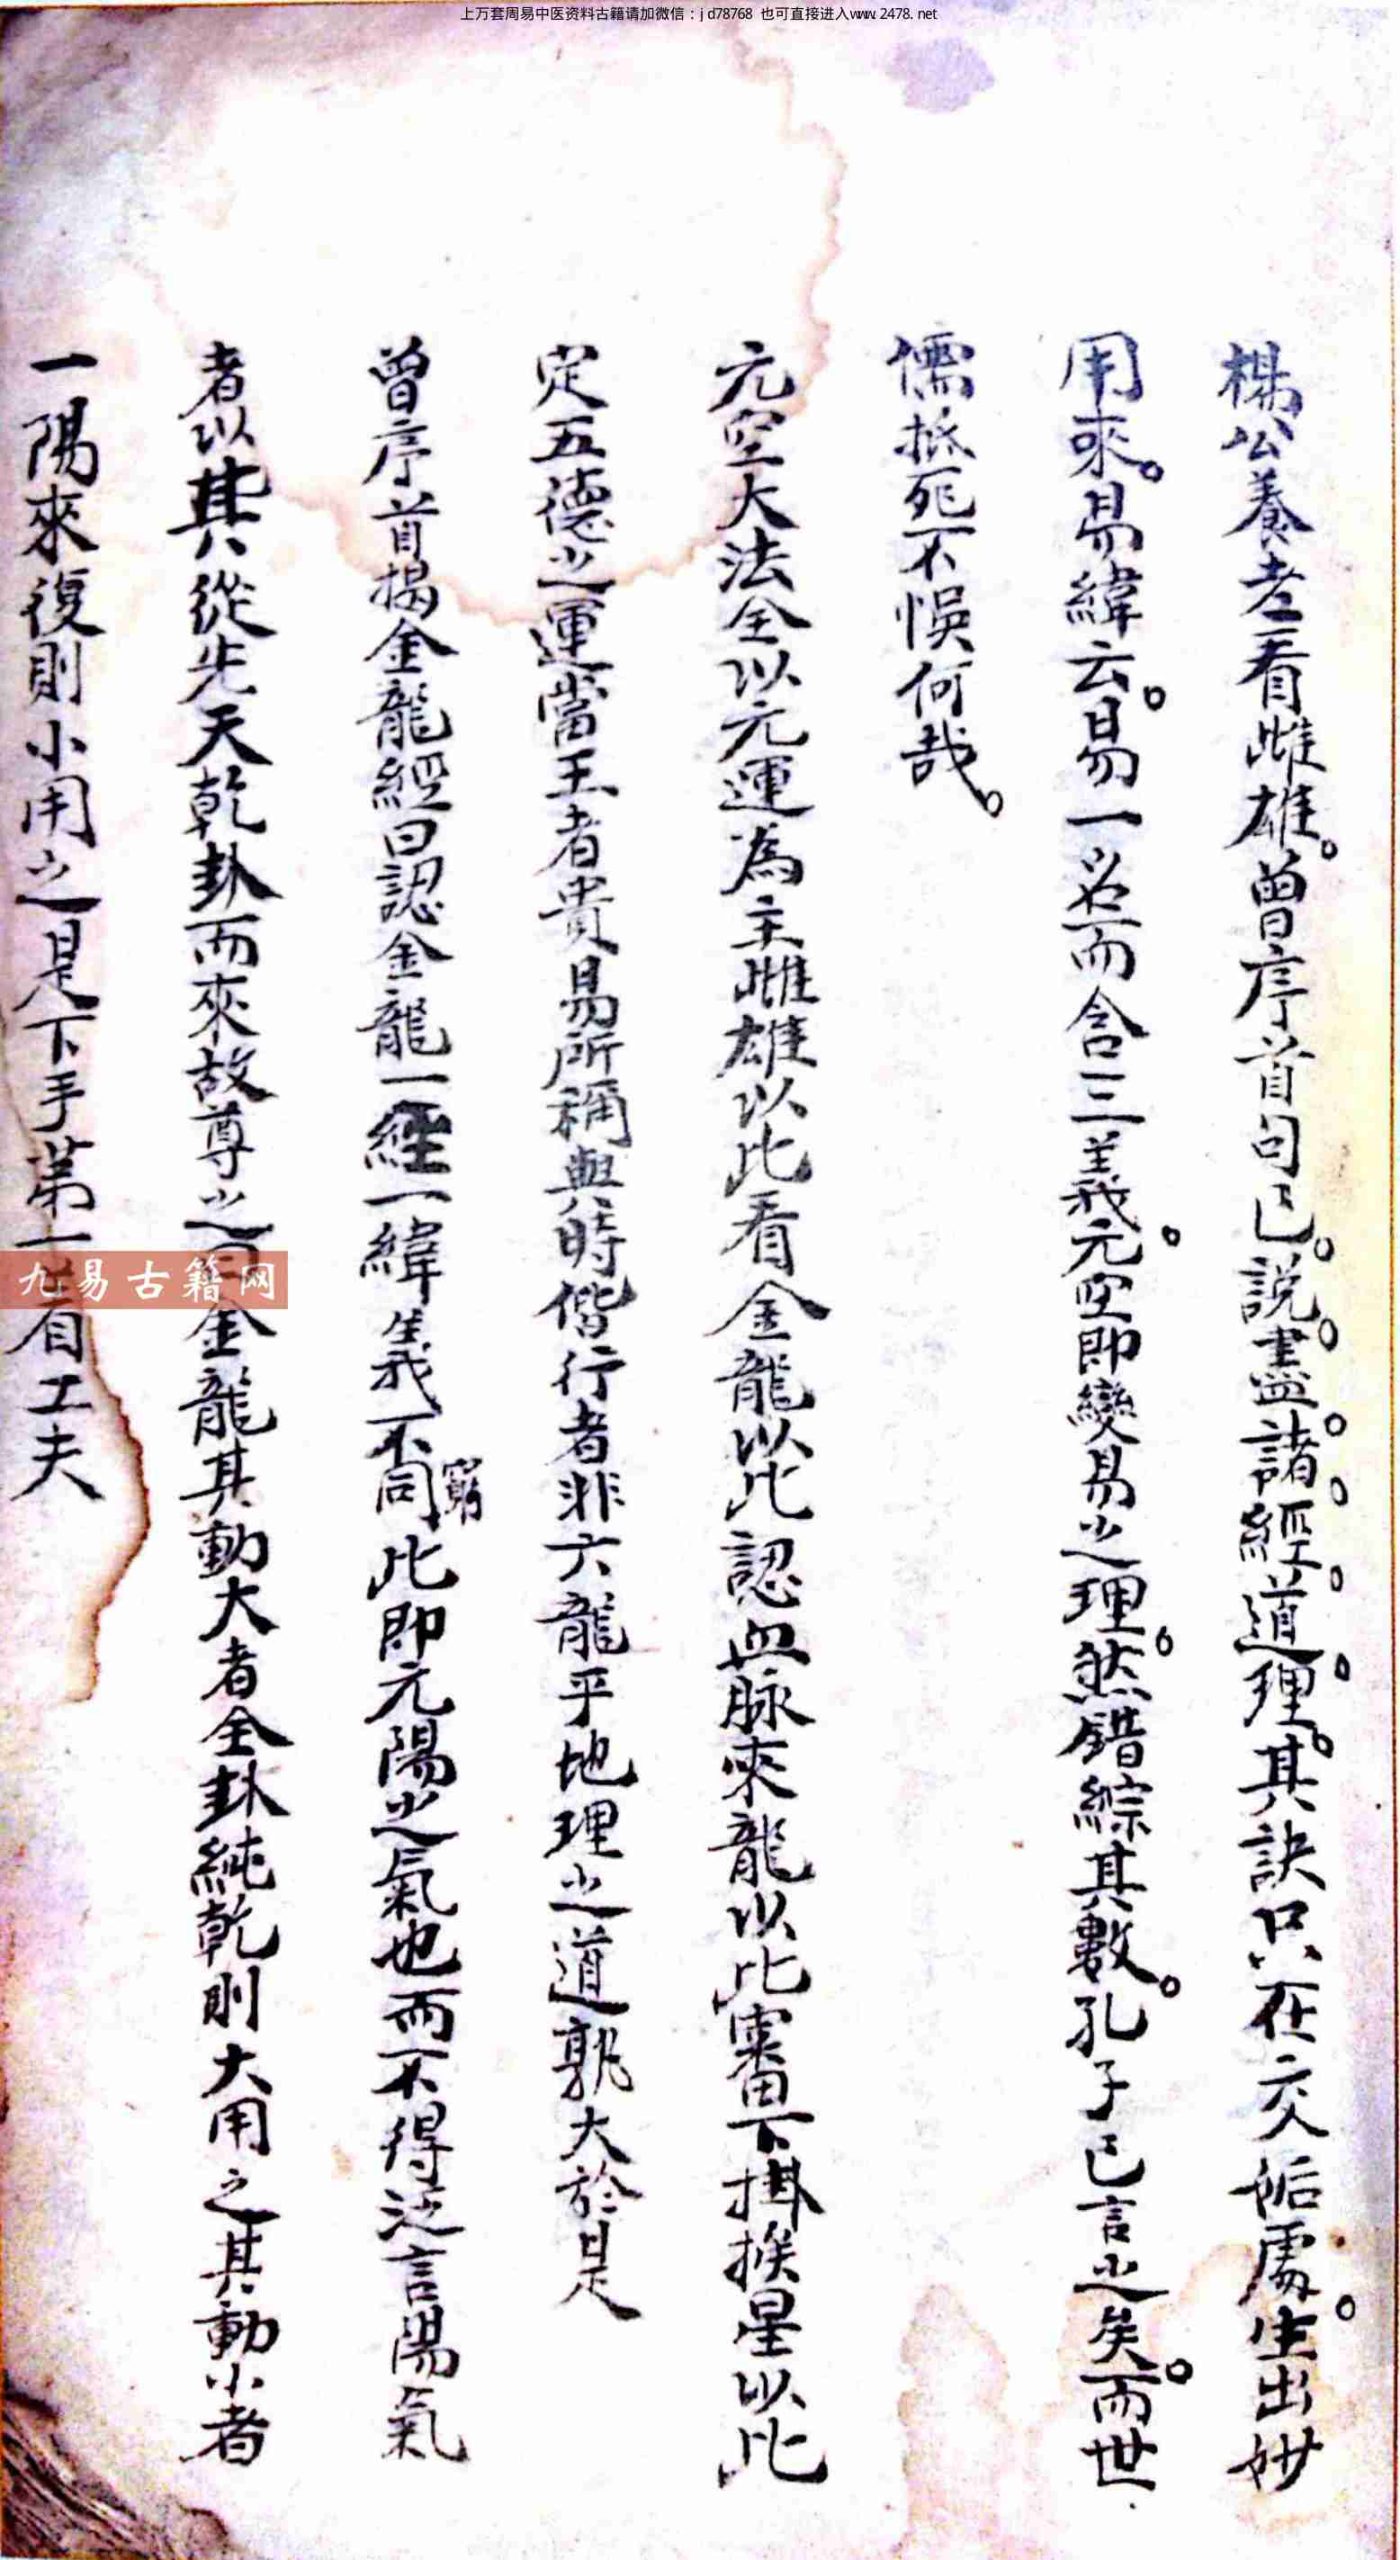 上万套周易中医资料古籍请加微信：jd78768 也可直接进入www.2478.net
楊公養老看雌雄。曾序首句已。説。盡。諸。經。道。理。其訣只在交姤處。生出妙
用來。易緯云。易一名而含三義。元空即變易之理。然錯綜其數。孔子已言之矣。而世
儒抵死不悞何哉。
元空大法全以元運為主雌雄以此看金龍以此認血脉來龍以此審下掛挨星以此
定五德之運當王者貴易所稱與時偕行者非六龍乎地理之道孰大於是
曾序首揭金龍經曰認金龍一經一緯義不同
窮
此即元陽之氣也而不得泛言陽氣
者以其從先天乾卦而來故尊之金龍其動大者全卦純乾則大用之其動小者
一陽來復則小用之是下手第一看工夫
九易古籍网